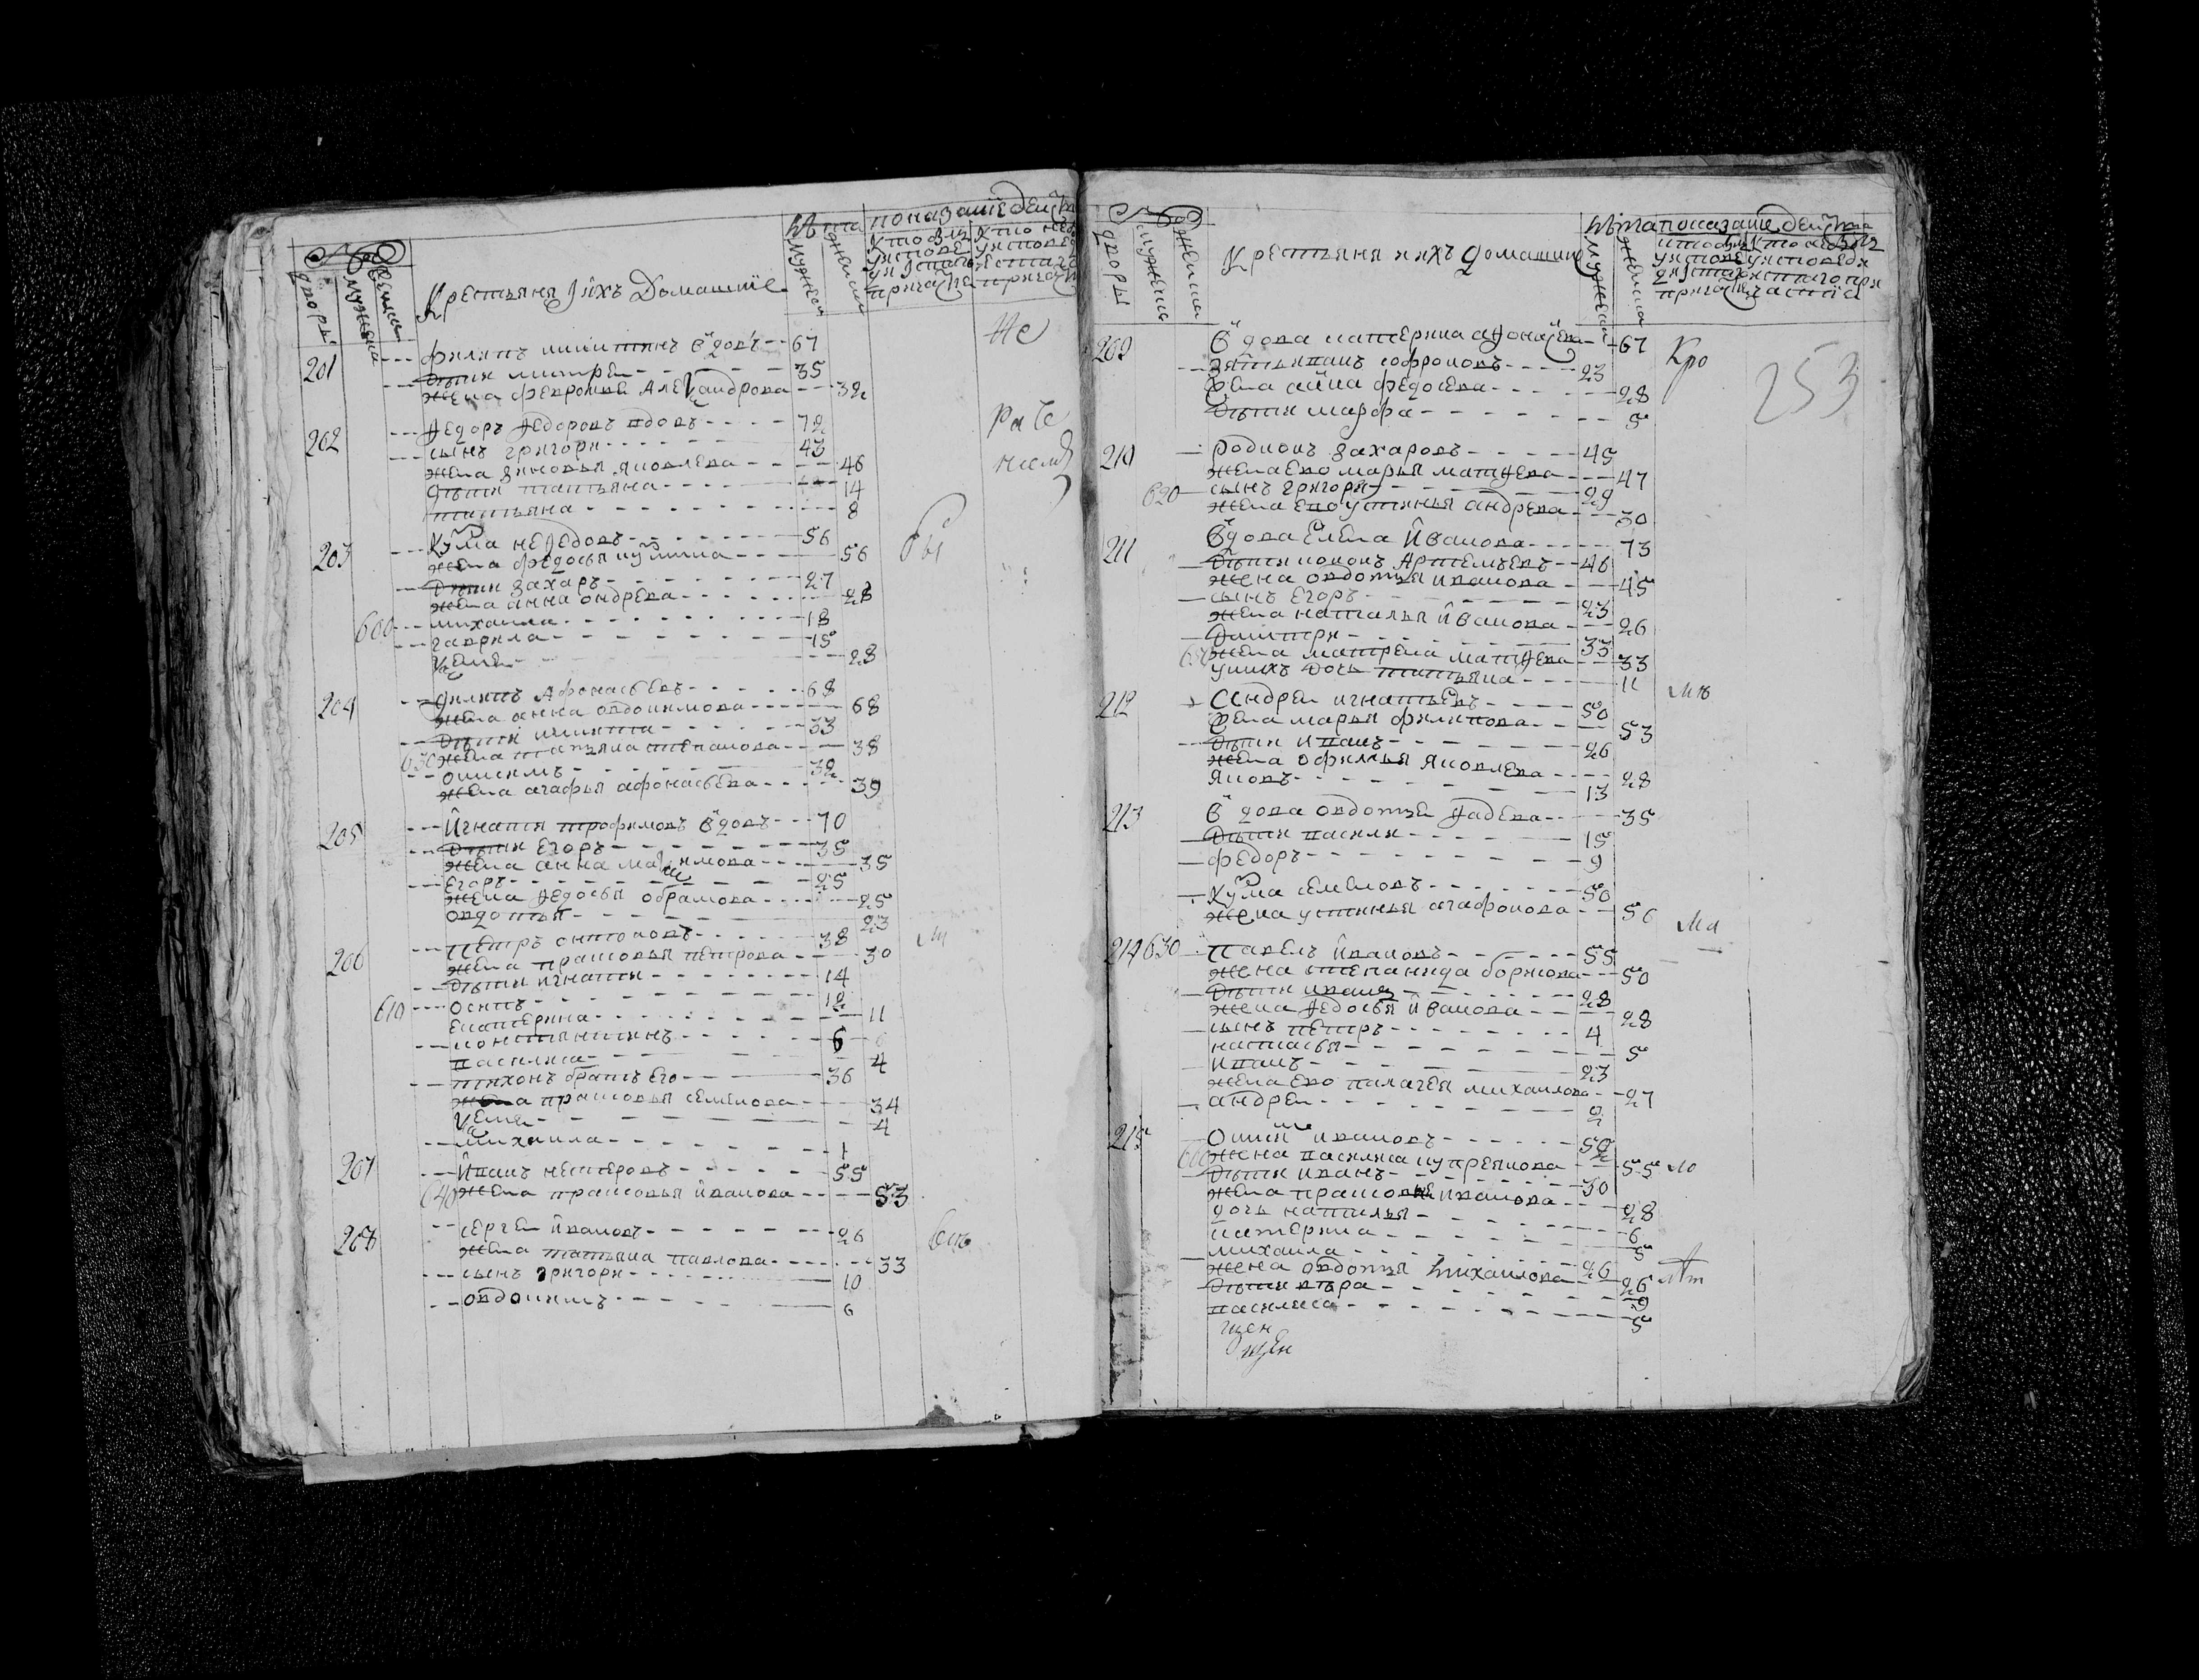 №
дворы
мужеска
женска
Крестьяня і ихъ Домашнïе
лѣта
мужеска
женска
показанïе действа
201 филипъ никитинъ вдовъ 67
дѣти дмитреи 35
жена февронья Алеѯандрова 32
202 Ѳедоръ Ѳедоровъ вдовъ 72
сынъ григори 43
жена зиновья яковлева 46
дѣти татьяна 14
татьяна 8
203 Кузма неѳедовъ 56
жена федосья кузмина 56
Дѣти захаръ 27
жена анна ондрева 28
600 михаила 18
гаврила 15
28
204 филипъ Афонасьевъ 68
жена анна овдокимова 68
дѣти никита 33
жена татьяна степанова 38
онисимъ 32
жена агафья афонасьева 39
205 Игнатiи трофимовъ вдовъ 70
Дѣти Егоръ 35
жена анна маѯимова 35
Егоръ 25
жена Ѳедосья обрамова 25
овдотья 23
206 Петръ онтоновъ 38
жена прасковья петрова 30
дѣти игнатiи 14
610 осипъ 12
екатерина 11
констянтинъ 6
василиса 4
тихонъ братъ Его 36
жена прасковья семенова 34
4
михаила 1
207 Иванъ нестеровъ 55
640 жена прасковья иванова 53
208 сергеи ивановъ 26
жена татьяна павлова 33
сынъ григори 10
овдокимъ 6
Не
ра че
бы
№
дворы
мужеска
женска
Крестьяня и ихъ домашнïе
лѣта
мужеска
женска
показанïе действа
253
209 вдова катерина аѳонасева 67 Кро
зять иванъ софроновъ 23
жена анна федосева 28
дѣти марфа 5
210 родионъ захаровъ 45
жена ево марья матѳева 47
620 сынъ григори 29
жена ево устинья андрева 30
211 вдова Елена Иванова 73
Дѣти кононъ Артемьевъ 46
жена овдотья иванова 45
сынъ егоръ 23
жена наталья Иванова 26
Дмитри 33
жена матрена матѳева 33
у нихъ дочь татьяна 11
212 Андреи игнатьевъ 50
жена марья филипова 53
дѣти иванъ 26
жена офимья яковлева 28
яковъ 13
213 вдова овдотья Ѳадева 35
Дѣти василеи 15
федоръ 9
Кузма семеновъ 50
жена устинья агафонова 56
214 630 Павелъ Ивановъ 55
жена степанида борисова 50
Дѣти иванъ 28
жена Ѳедосья Иванова 28
сынъ петръ 4
настасья 5
иванъ 23
жена ево палагея михаилова 27
андреи 2
215 ивановъ 52
жена василиса купреянова 55
Дѣти иванъ 30
жена прасковья иванова 28
дочь наталья 6
катерина 5
михаила 26
жена овдотья михаилова 26
Дѣти вѣра 9
василиса 5